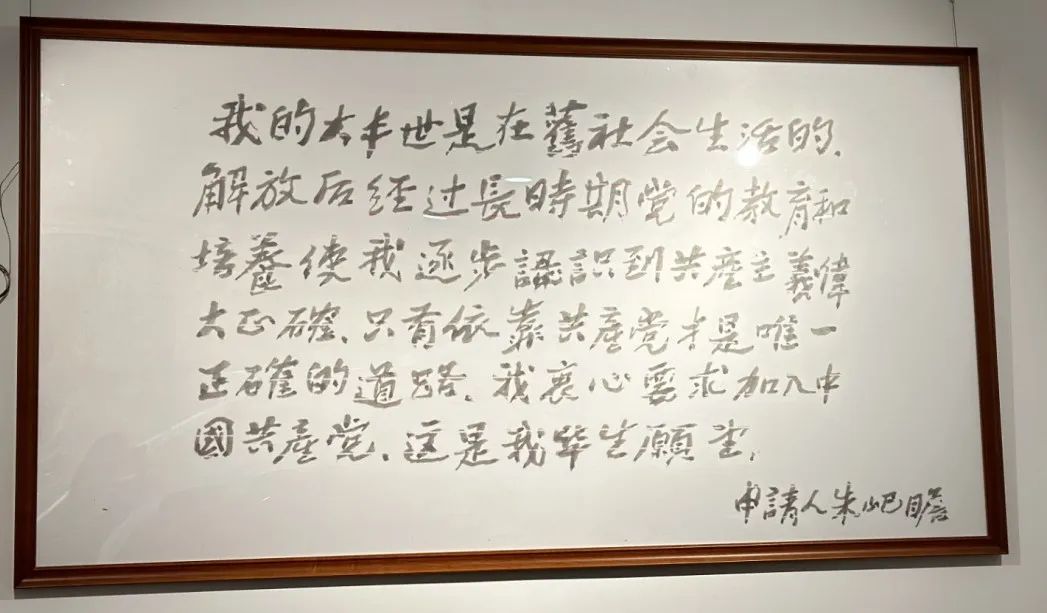 我的大半世是在舊社会生活的.
解放后经过長時期党的教育和
培養使我逐步認識到共產主義偉
大正確.只有依靠共產党才是唯一
正確的道路.我衷心要求加入中
國共產党.这是我毕生願望.
申請人朱屺瞻